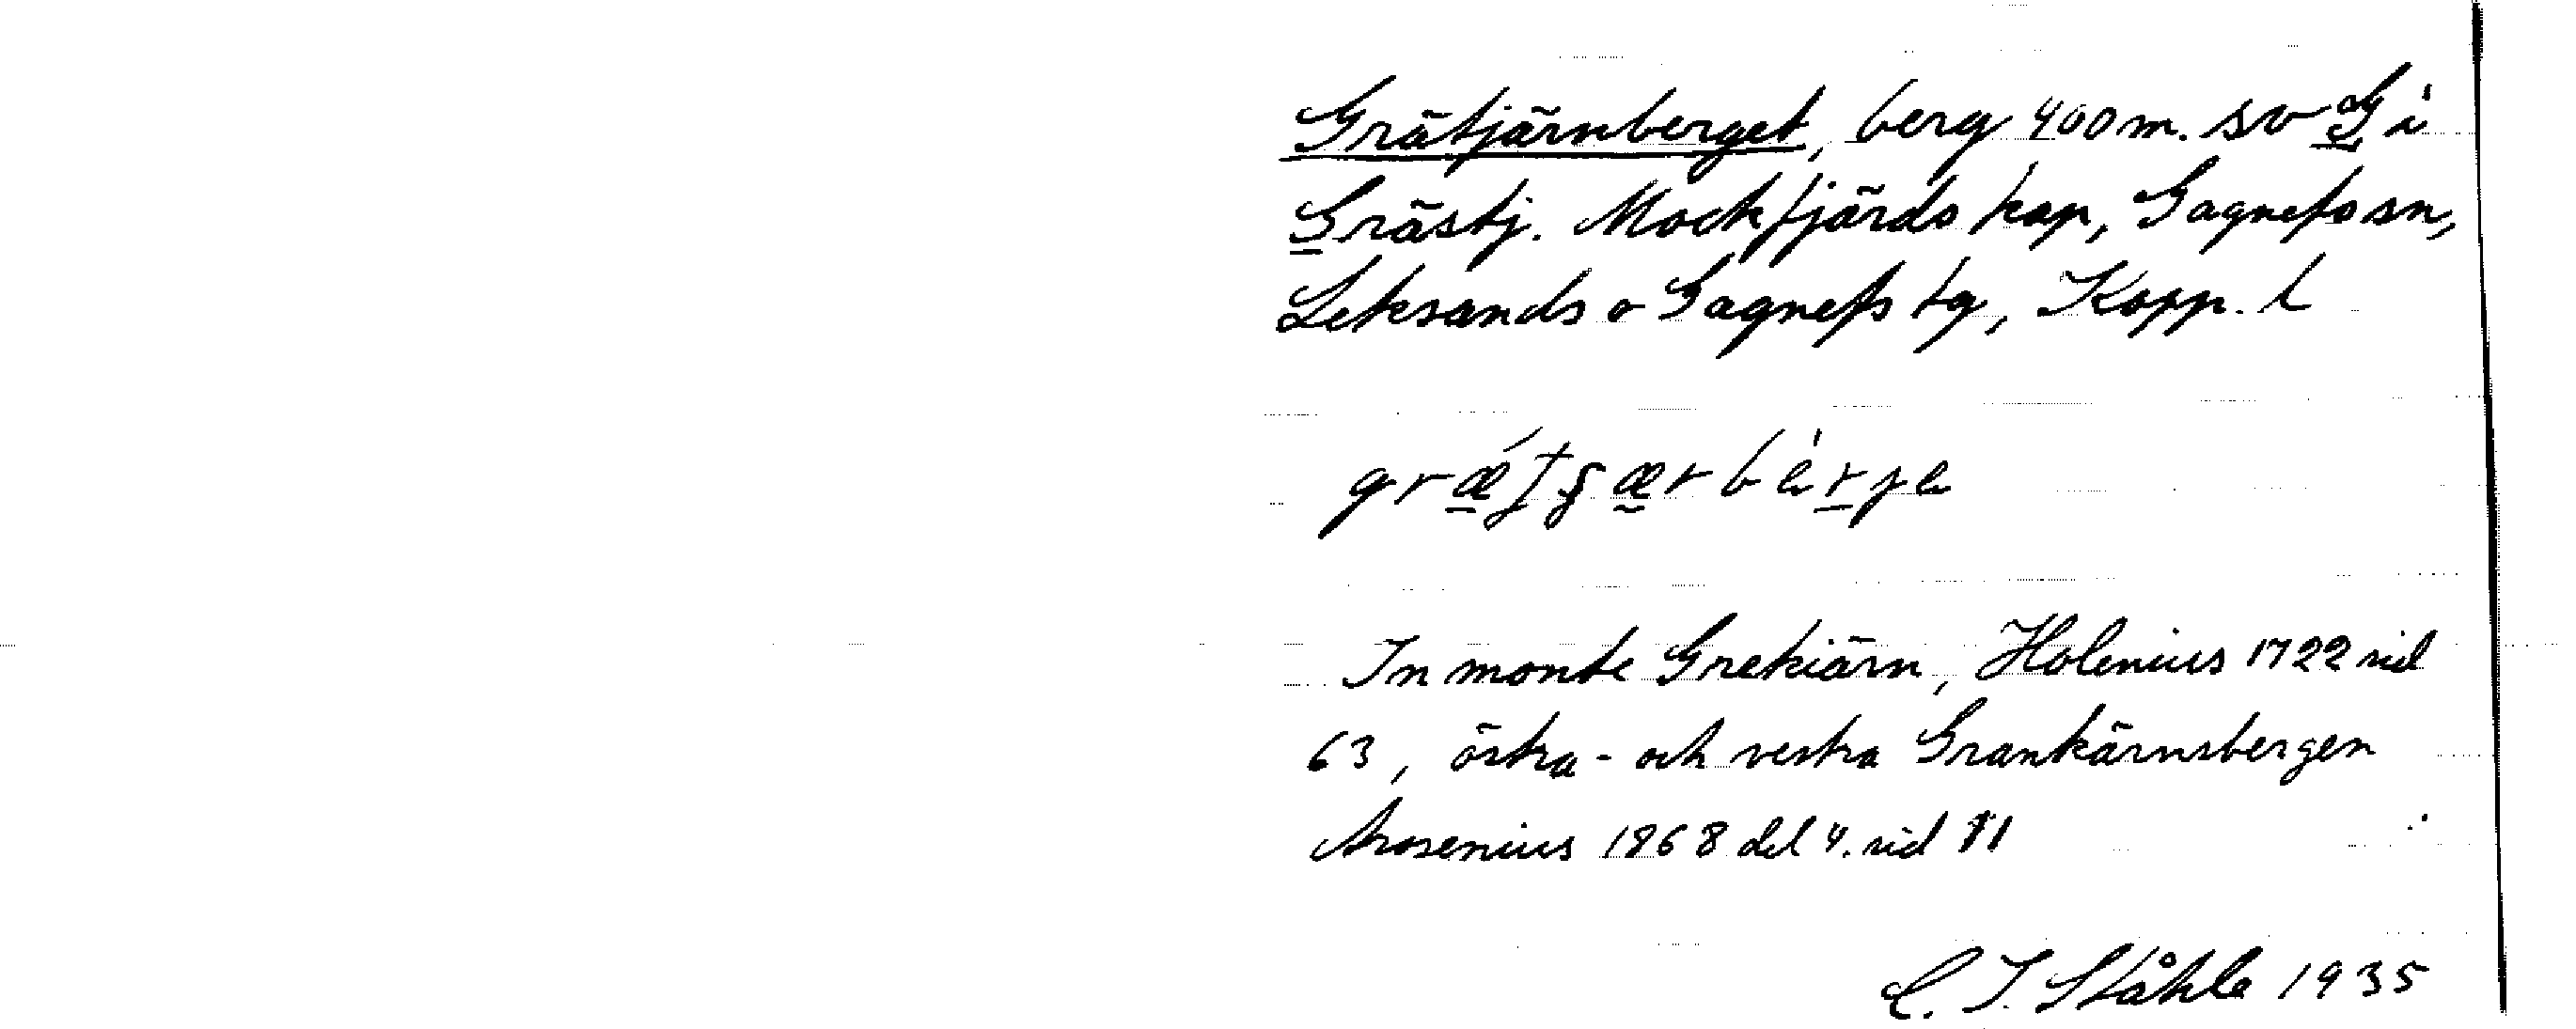 Grätjärnberget, berg 400 m. sv G i
Grästj. Mockfjärds kap, Gagnefs sn,
Leksands o Gagnefs tg, Kopp. l
In monte Grekiärn, Holenius 1722 sid
63, östra- och vestra Grankärnsbergen
Arosenius 1868 del 4. sid 11
C. I. Ståhle 1935